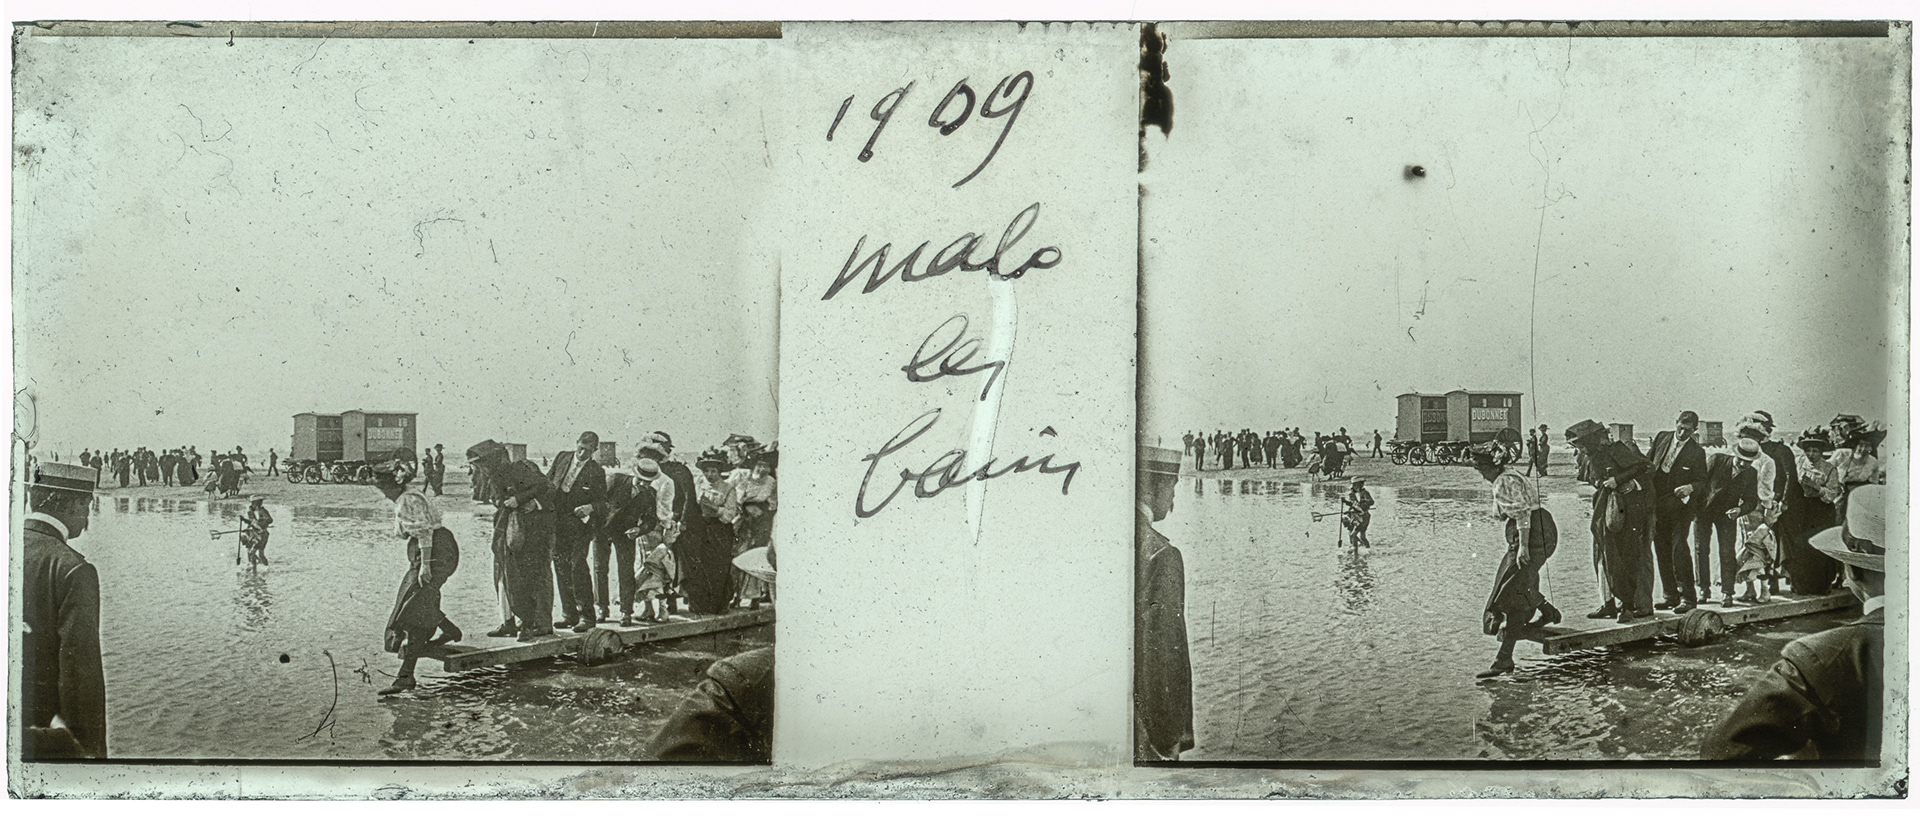 1909
malo
les
bains
DUBONNET
DUBONNET